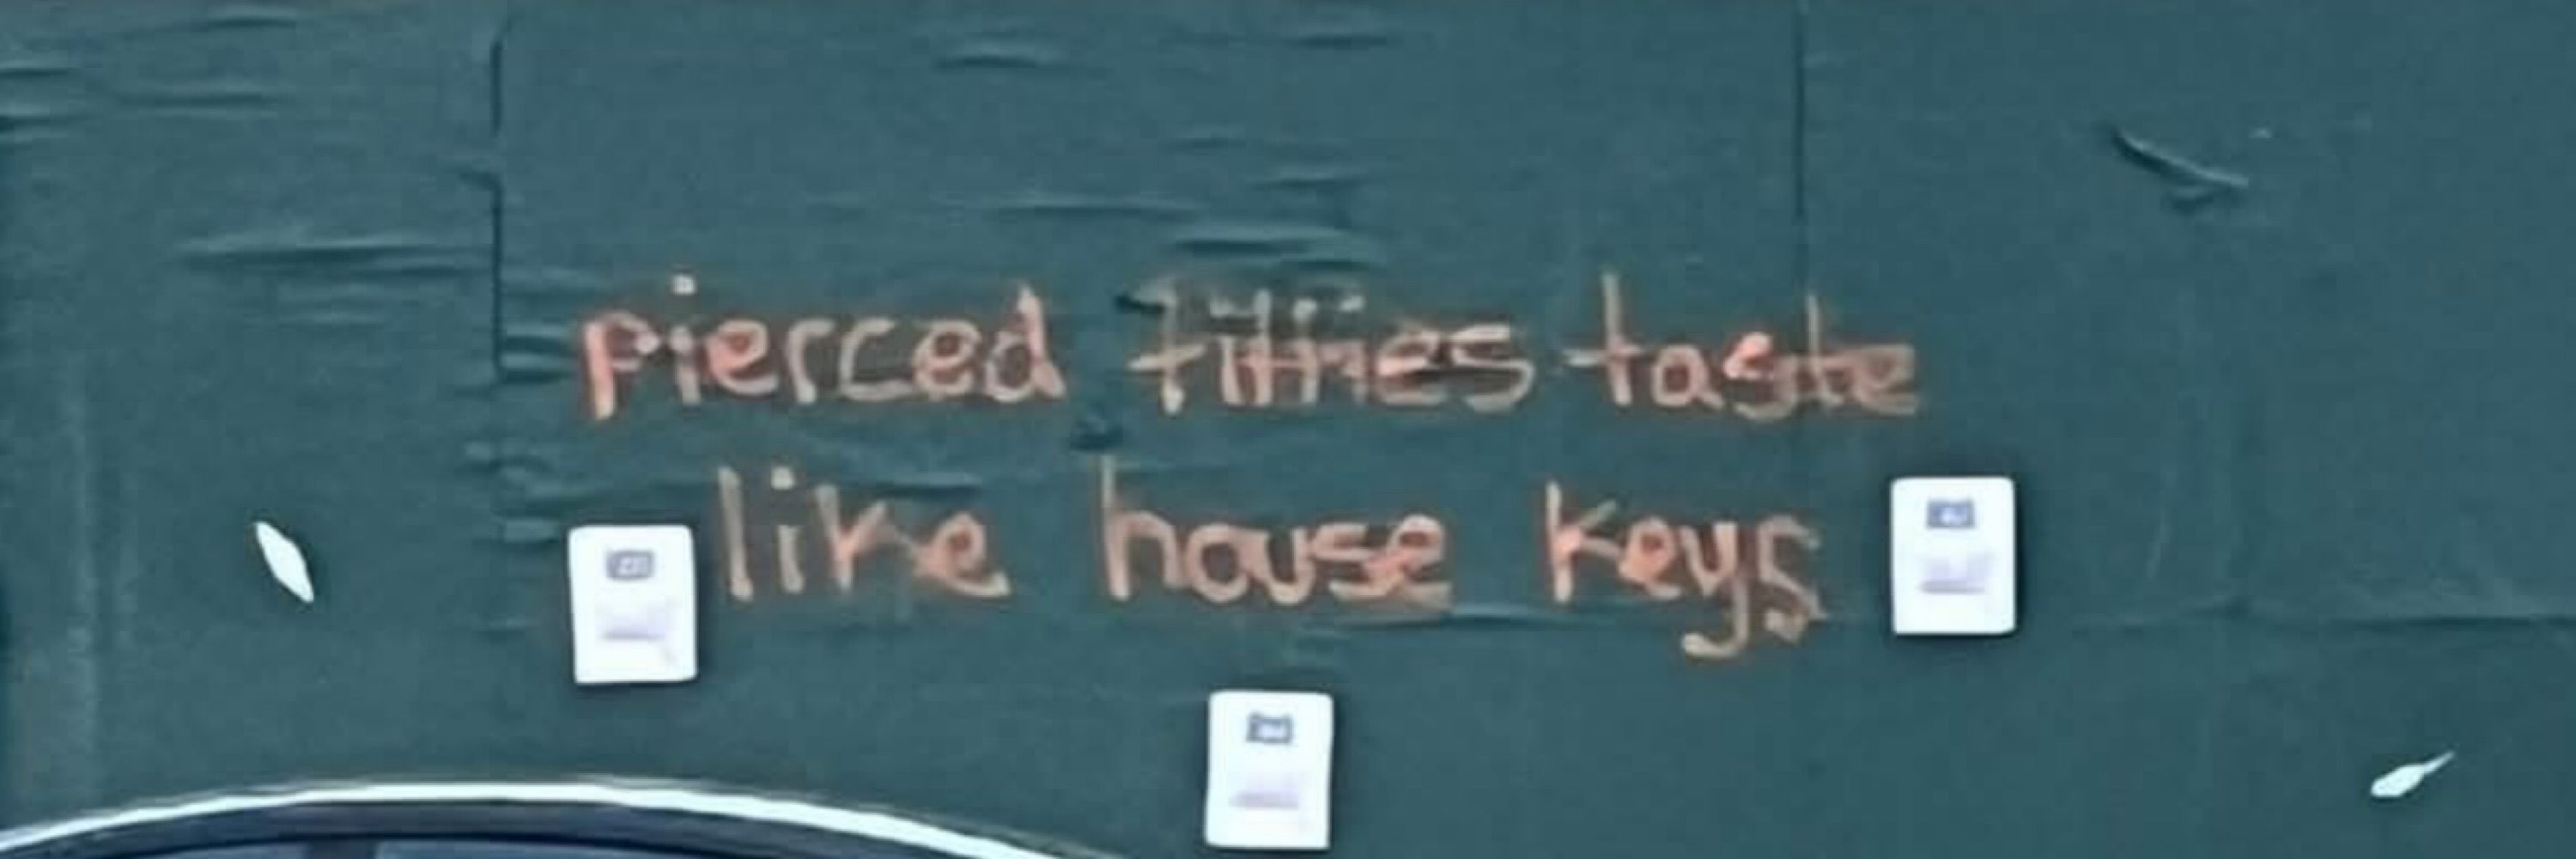 pierced titties taste
like house keys